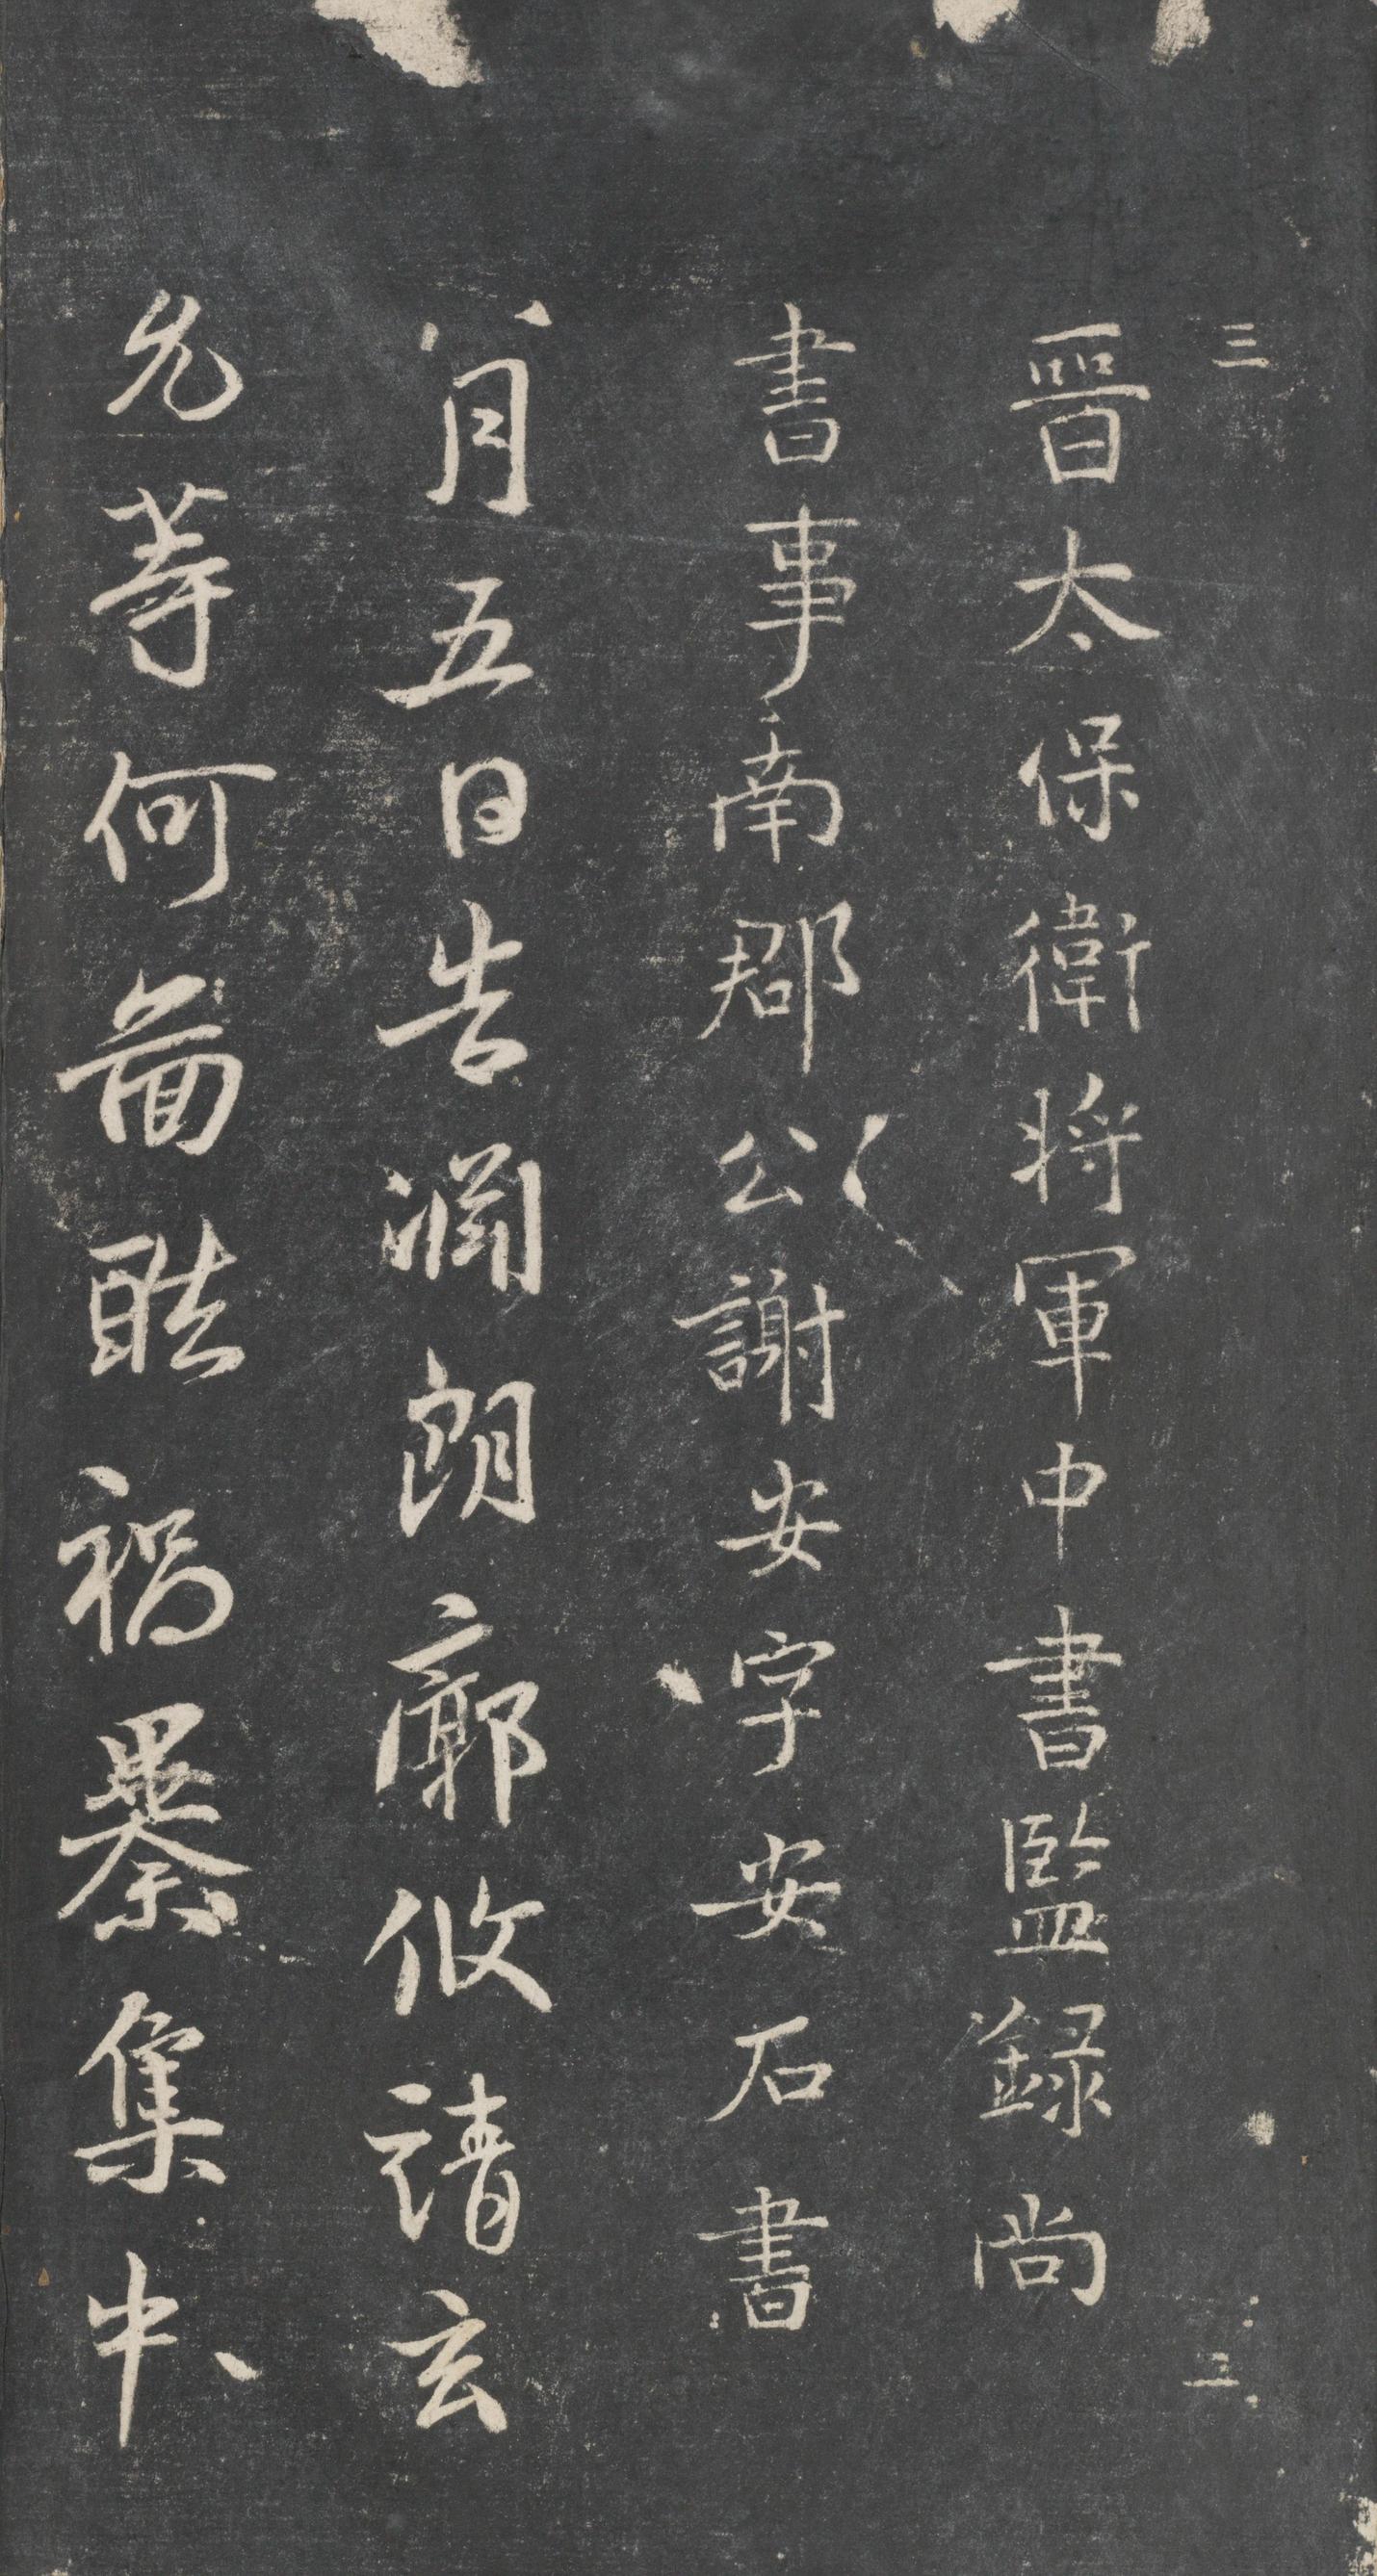 三
晉太保衛將軍中書監錄尚
書事南郡公謝安字安石書
八月五日告淵朗廓攸靖玄
允等何圖酷禍暴集中
三